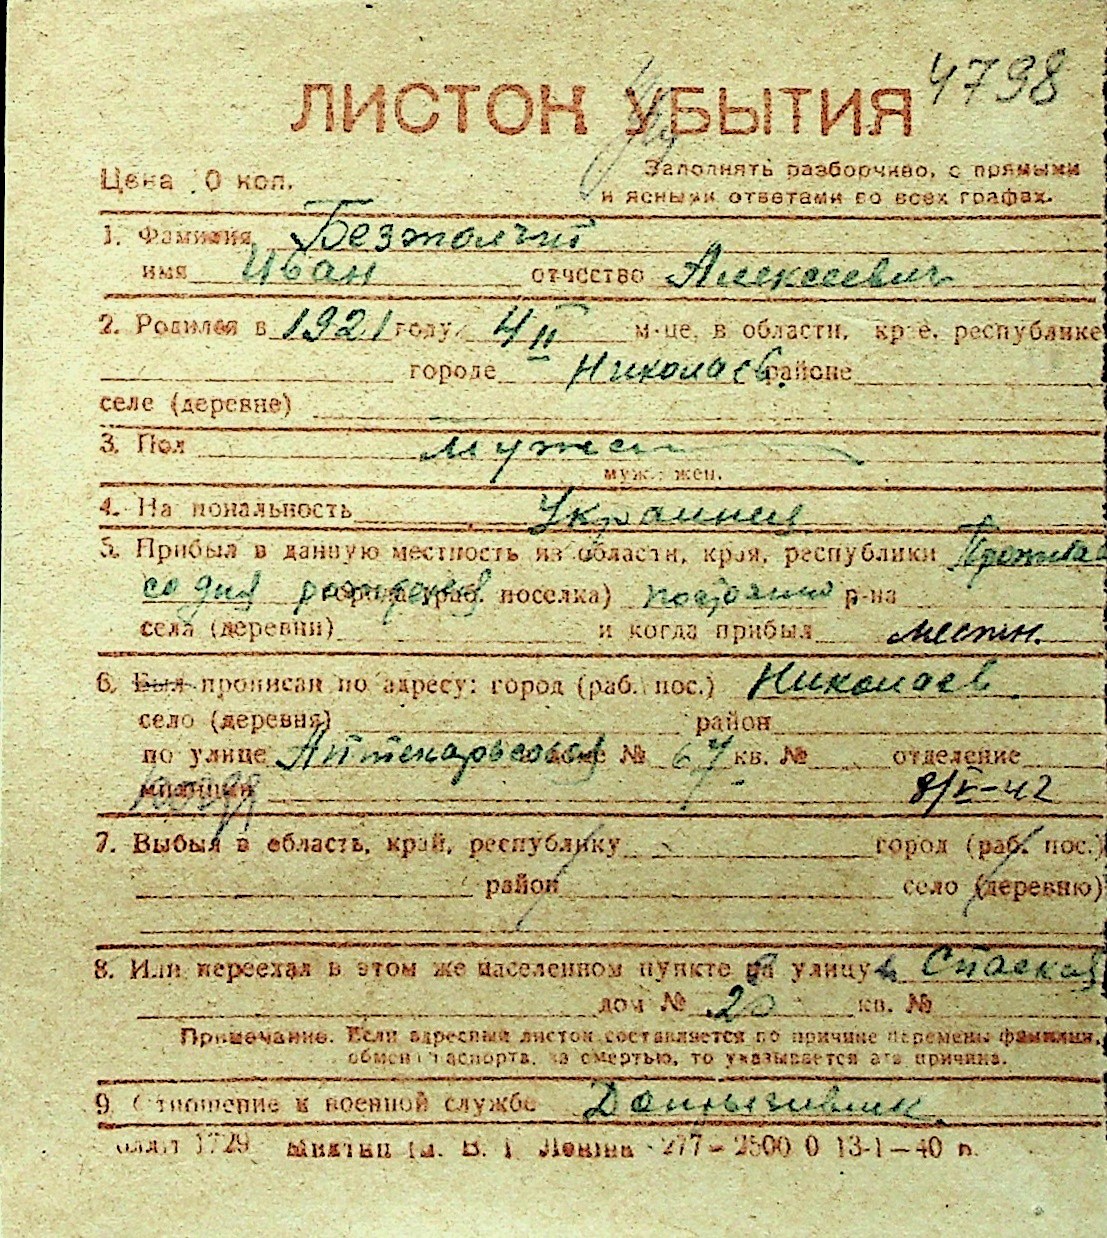 4798
ЛИСТОК УБЫТИЯ
Цена 10 коп.
Заполнять разборчиво, с прямыми
и ясными ответами во всех графах.
1. Фамилия Безтолчит
имя Иван отчество Алексеевич
2. Родился в 1921 году, 4 II м-це, в области, крае, республике
городе Николаев. районе
селе (деревне)
3. Пол Мужск
муж., жен.
4. Национальность Украинец
5. Прибыл в данную местность из области, края, республики Проживав
со дня рождения города (раб. поселка) постоянно р-на
села (деревни) и когда прибыл местн.
6. Был прописан по адресу: город (раб. пос.) Николаев
село (деревня) район
по улице Аптекарьская доме № 67 кв. № отделение
милиции 8/V-42
7. Выбыл в область, край, республику город (раб. пос.)
район село (деревню)
8. Или переехал в этом же населенном пункте на улицу Спаская
дом № 20 кв. №
Примечание. Если адресный листок составляется по причине перемены фамилии,
обмена паспорта, за смертью, то указывается эта причина.
9. Отношение к военной службе Допризивник
1729 им. В. И. Ленина 277–2500 0 13-1–40 п.